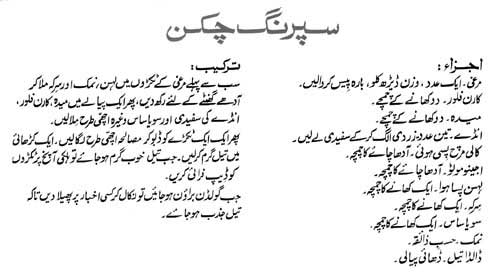 سپرنگ چکن
اجزاء :
مرغی۔ ایک عدد، وزن ڈیڑھ کلو، بارہ پیس کروالیں۔
کارن فلور۔ دو کھانے کے چمچے۔
میدہ۔ دو کھانے کے چمچے۔
انڈے۔ تین عدد، زردی الگ کر کے سفیدی لے لیں۔
کالی مرچ پسی ہوئی۔ آدھا چائے کا چمچہ۔
اجینو موٹو۔ آدھا چائے کا چمچہ۔
لہسن پسا ہوا۔ ایک کھانے کا چمچہ۔
سرکہ۔ ایک کھانے کا چمچہ۔
سویا ساس۔ ایک کھانے کا چمچہ۔
نمک۔ حسب ذائقہ۔
ڈالڈا تیل۔ ڈھائی پیالی۔
ترکیب :
سب سے پہلے مرغی کے ٹکڑوں میں لہسن، نمک اور سرکہ ملا کر
آدھے گھنٹے کے لئے رکھ دیں، پھر ایک پیالے میں میدہ، کارن فلور،
انڈے کی سفیدی اور سویا ساس وغیرہ اچھی طرح ملالیں۔
پھر ایک ایک ٹکڑے کو ڈبو کر مصالحہ اچھی طرح لگالیں۔ ایک کڑھائی
میں تیل گرم کرلیں۔ جب تیل خوب گرم ہو جائے تو ہلکی آنچ پر ٹکڑوں
کو ڈیپ فرائی کریں۔
جب گولڈن براؤن ہو جائیں تو نکال کر کسی اخبار پر پھیلا دیں تاکہ
تیل جذب ہو جائے۔